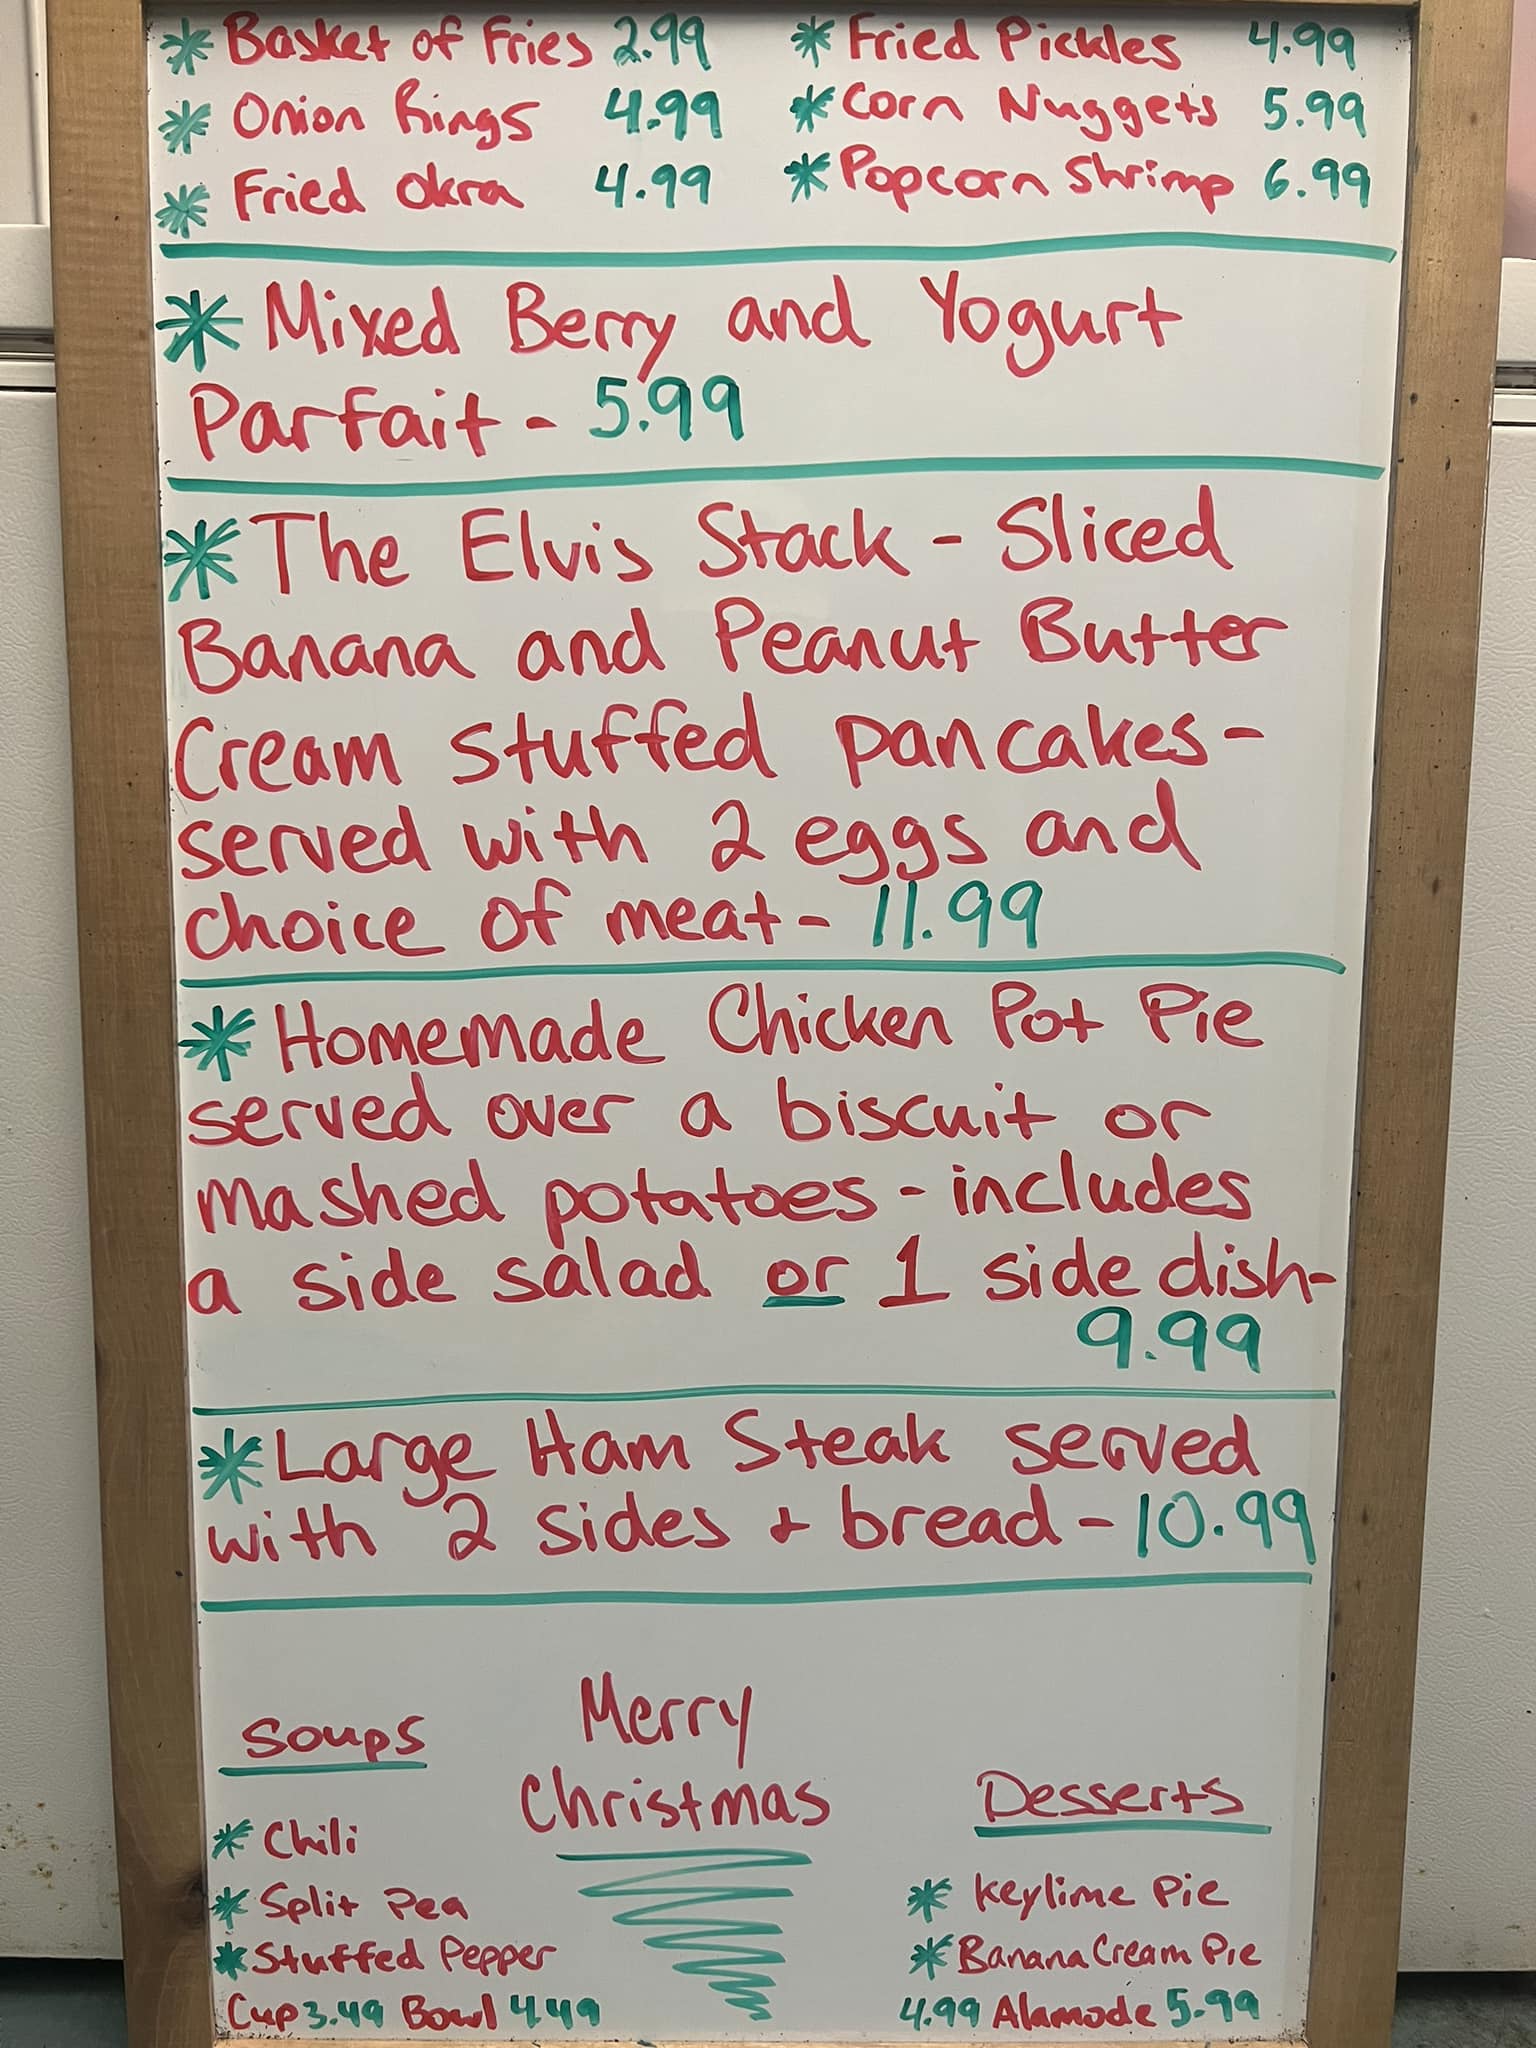 * Basket of Fries 2.99 * Fried Pickles 4.99
* Onion Rings 4.99 * Corn Nuggets 5.99
* Fried Okra 4.99 * Popcorn Shrimp 6.99
* Mixed Berry and Yogurt
Parfait - 5.99
* The Elvis Stack - Sliced
Banana and Peanut Butter
Cream stuffed pancakes -
served with 2 eggs and
choice of meat - 11.99
* Homemade Chicken Pot Pie
served over a biscuit or
mashed potatoes - includes
a side salad or 1 side dish -
9.99
* Large Ham Steak served
with 2 sides + bread - 10.99
Merry
Christmas
Soups
* Chili
* Split Pea
* Stuffed Pepper
Cup 3.49 Bowl 4.49
Desserts
* Keylime Pie
* Banana Cream Pie
4.99 Alamode 5.99